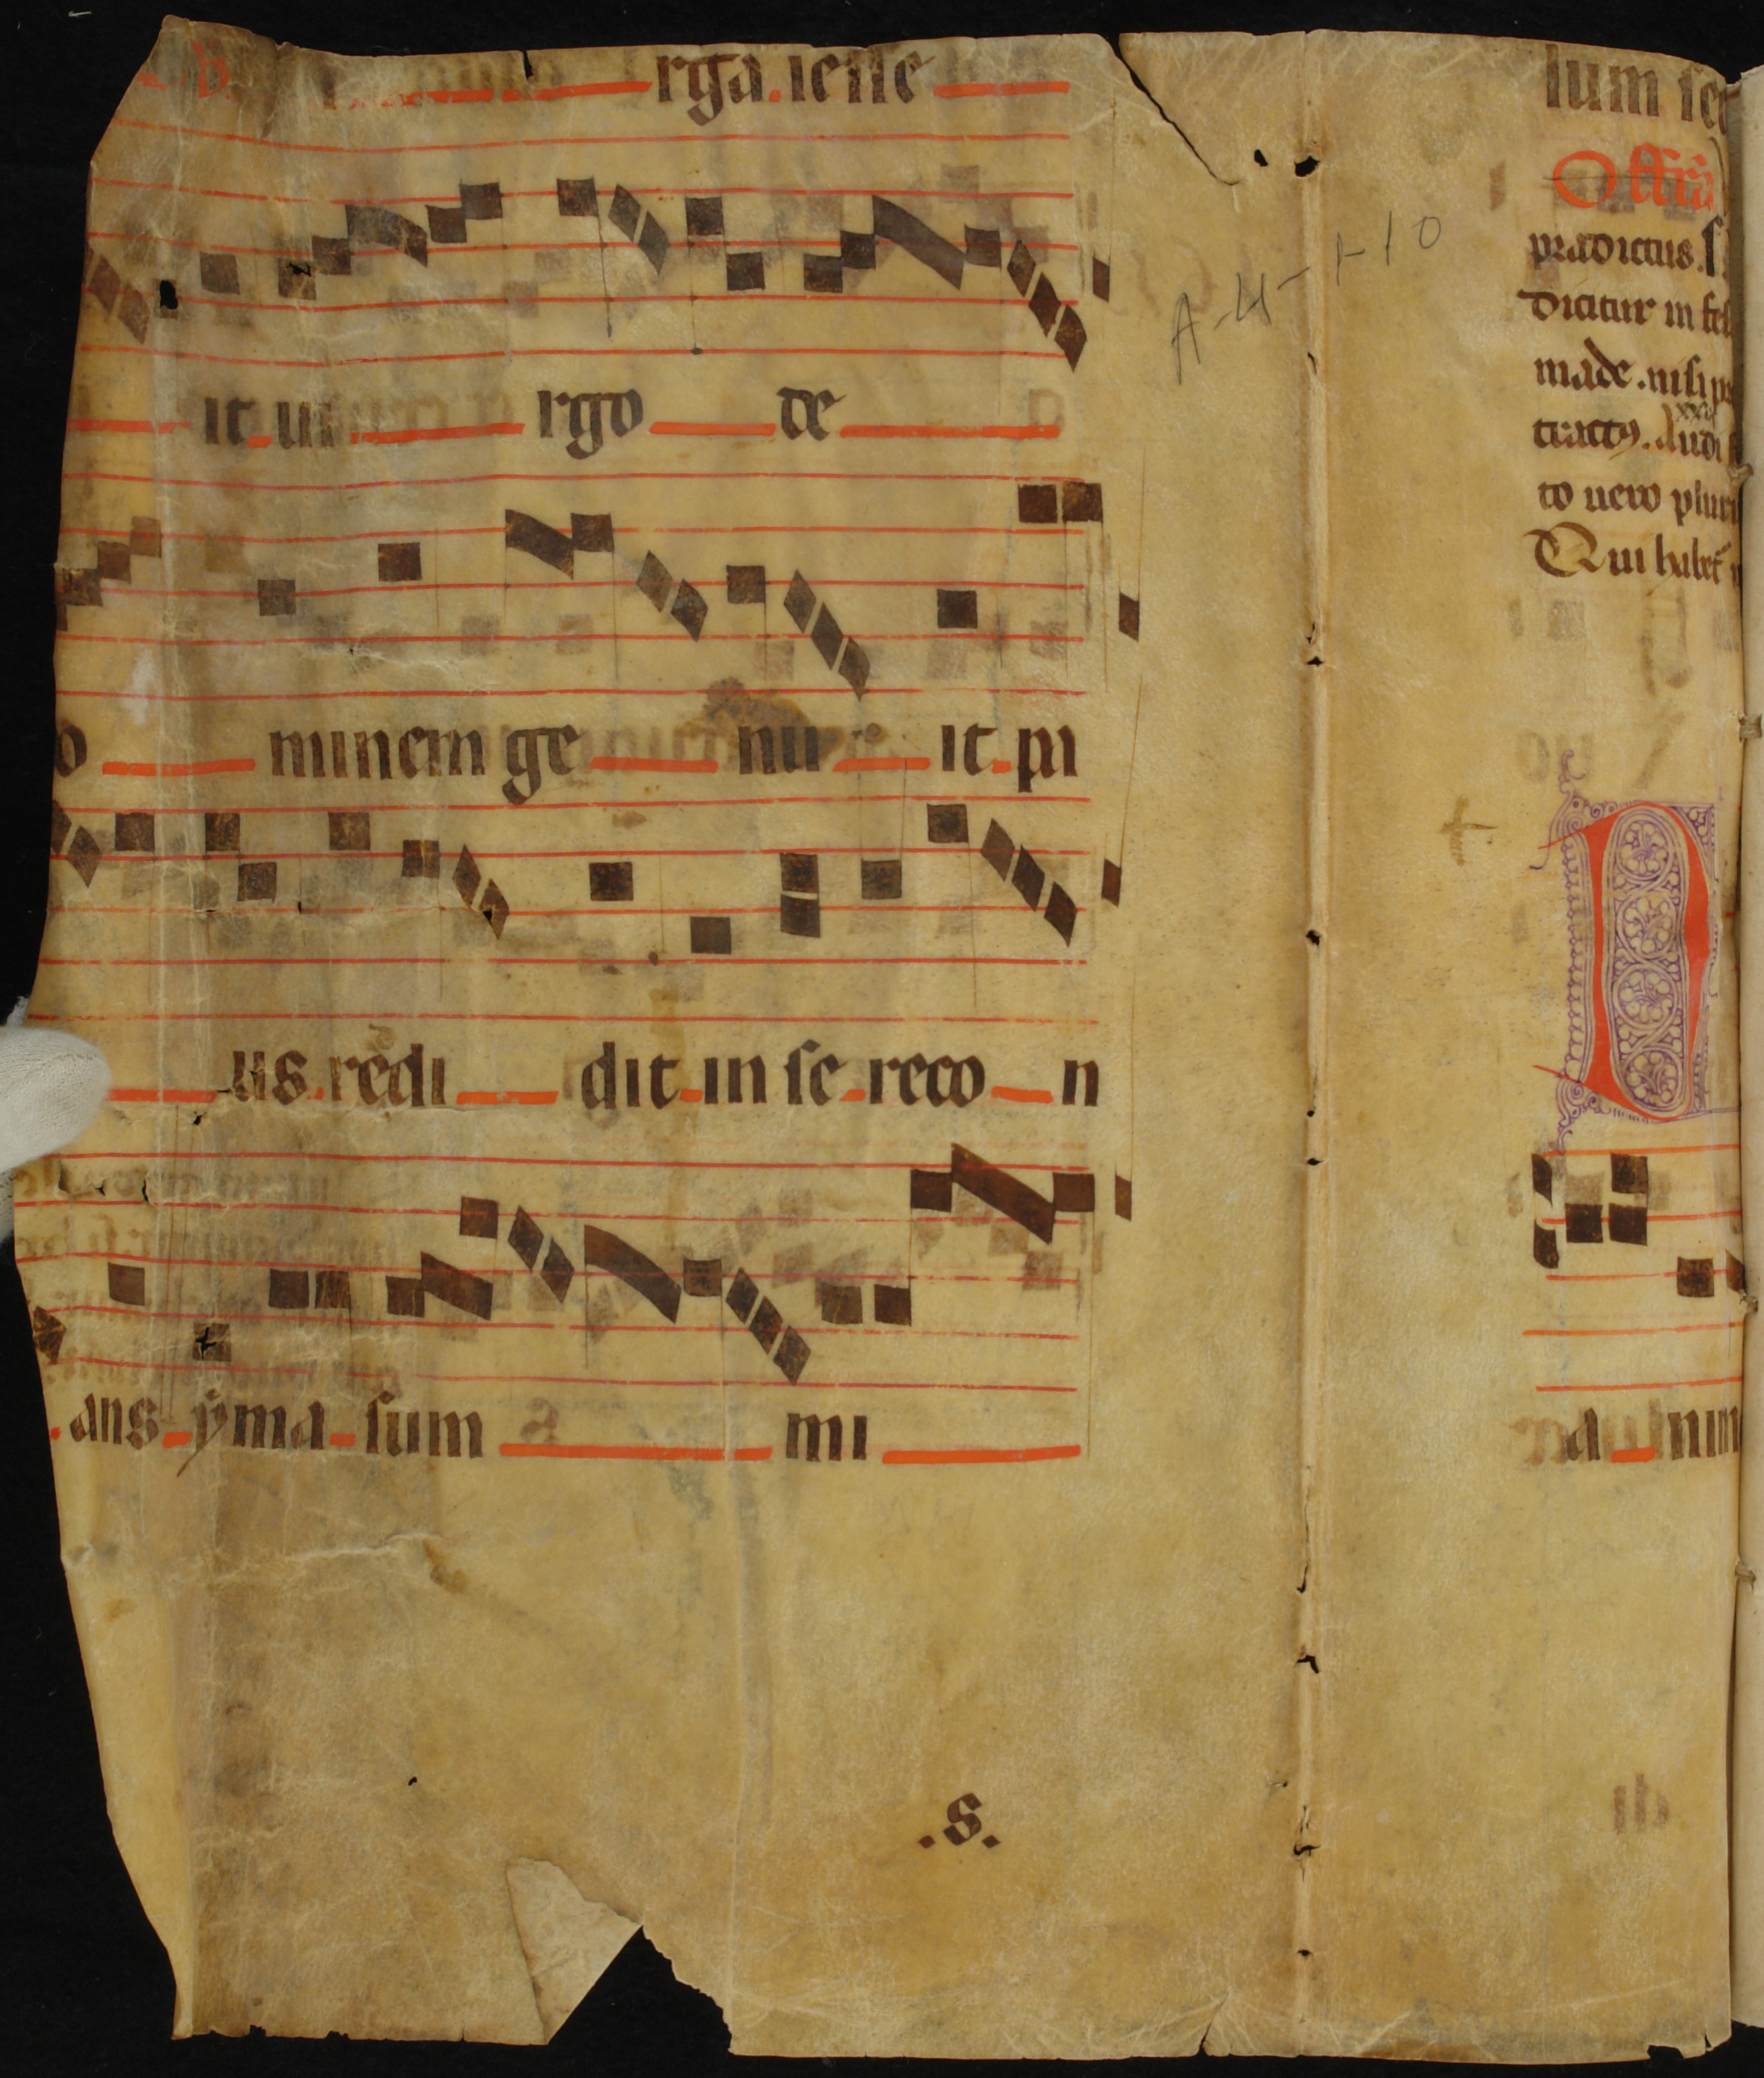 ℣. rga.iesse
it ui rgo de
o minem ge nu it pa
us.redi dit in se reco n
ans yma sum mi
.S.
A-4-1-10
lum se
Offr̄a
pradictus. S
dicitur in fes
made. nisi p
tractꝯ. Audi
to uero pluri
Qui habet
a nim